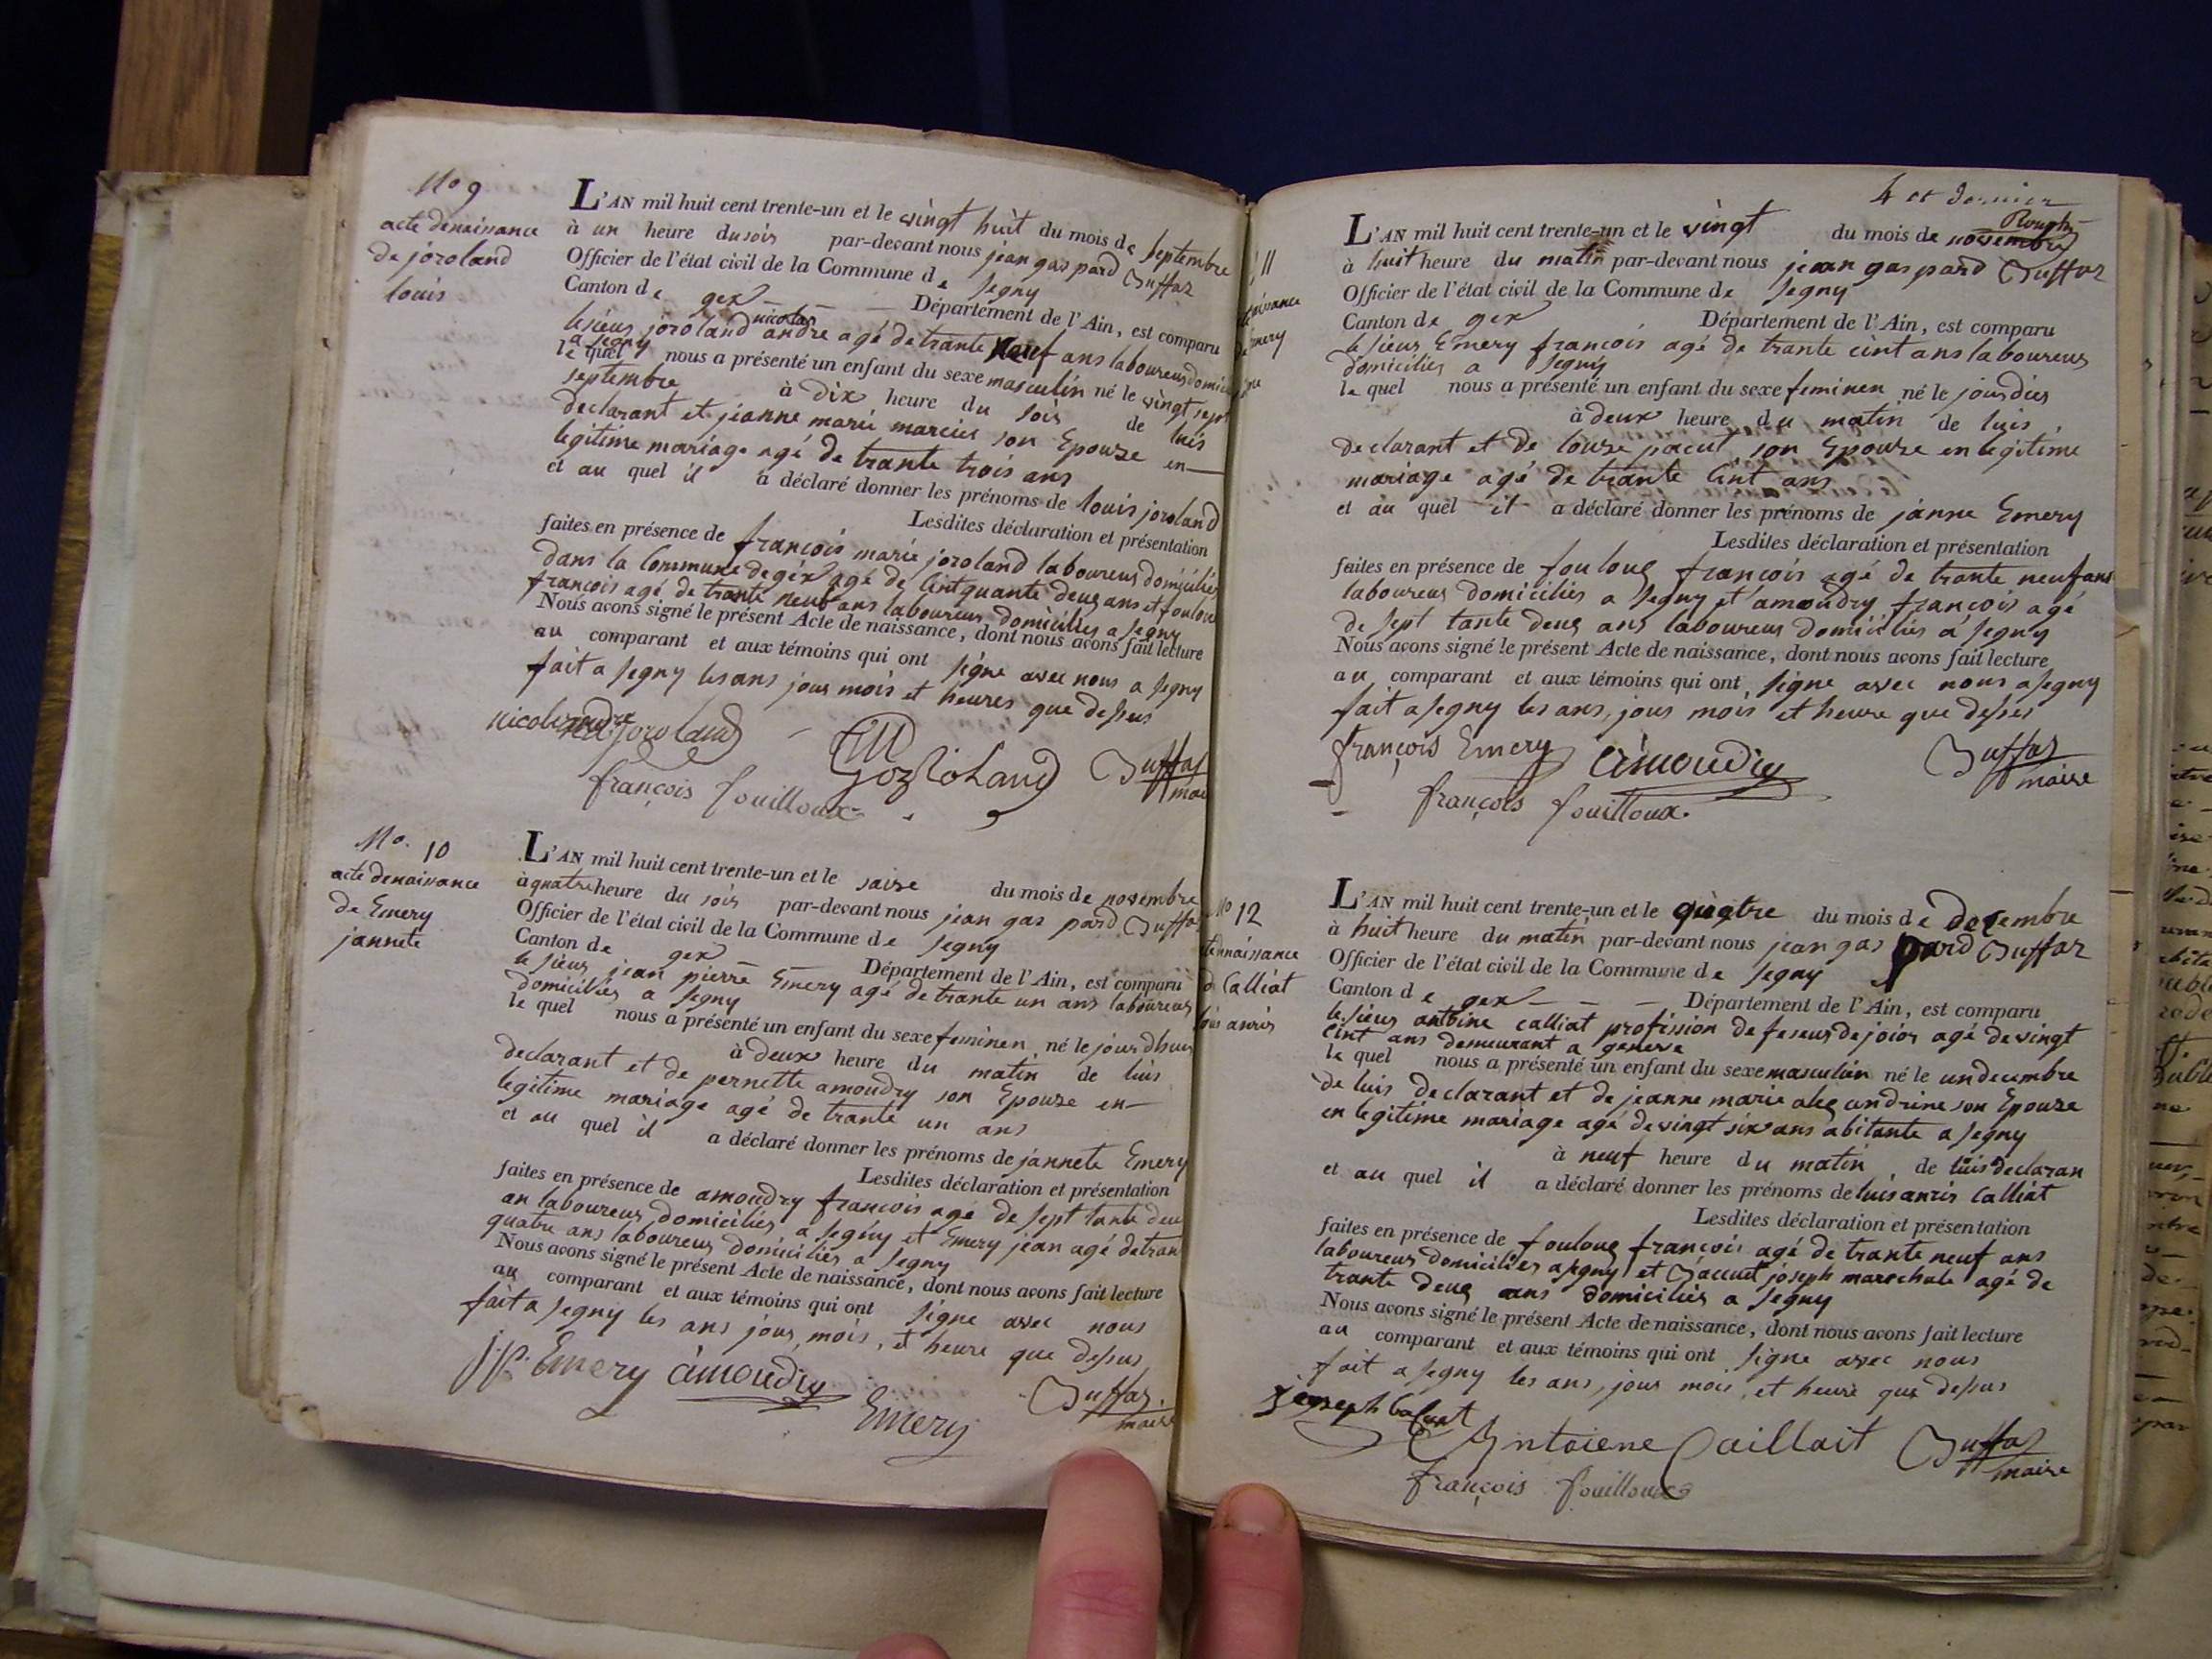 No 9
acte denaissance
de joroland
louis
L'AN mil huit cent trente-un et le vingt huit du mois de septembre
à un heure du soir par-devant nous jean gas pard Duffaz
Officier de l'état civil de la Commune de segny
Canton de gex Département de l'Ain, est comparu
le sieur joroland nicolas andre agé de trante neuf ans laboureur domici
a segny
le quel nous a présenté un enfant du sexe masculin né le vingt sept
septembre à dix heure du soir de luis
declarant et jeanne marie marcier son Epouze en
legitime mariage agé de trante trois ans
et au quel il a déclaré donner les prénoms de louis joroland
Lesdites déclaration et présentation
faites en présence de françois marie joroland laboureur domicilié
dans la Commune de gex agé de Cintquante deux ans et foulou
françois agé de trante neuf ans laboureur domicilies a segny
Nous avons signé le présent Acte de naissance, dont nous avons fait lecture
au comparant et aux témoins qui ont signe avec nous a segny
fait a segny les ans jour mois et heures que dessus
nicolas andre joroland
Gozroland
Duffaz
mai
françois fouilloux
No. 10
acte denaissance
de Emery
jannete
L'AN mil huit cent trente-un et le saise du mois de novembre
à quatre heure du soir par-devant nous jean gas pard Duffa
Officier de l'état civil de la Commune de segny
Canton de gex Département de l'Ain, est comparu
le sieur jean pierre Emery agé de trante un ans laboureur
domiciliés a segny
le quel nous a présenté un enfant du sexe feminen né le jour dhui
à deux heure du matin de luis
declarant et de pernette amoudry son Epouze en
legitime mariage agé de trante un ans
et au quel il a déclaré donner les prénoms de jannete Emery
Lesdites déclaration et présentation
faites en présence de amoudry françois agé de sept tante deu
an laboureur domiciliés a segny et Emery jean agé de tran
quatre ans laboureur domiciliés a segny
Nous avons signé le présent Acte de naissance, dont nous avons fait lecture
au comparant et aux témoins qui ont signe avec nous
fait a segny les ans jour, mois, et heure que dessus
j. p. Emery amoudry
Emery
Duffaz
maire
4 et dernier
11
naissance
Emery
L'AN mil huit cent trente-un et le vingt du mois de novembre
à huit heure du matin par-devant nous jean gas pard Duffaz
Officier de l'état civil de la Commune de segny
Canton de gex Département de l'Ain, est comparu
le sieur Emery françois agé de trante cint ans laboureur
domiciliés a segny
le quel nous a présenté un enfant du sexe feminen né le jourdui
à deux heure du matin de luis
declarant et de louze pacut son Epouze en legitime
mariage agé de trante Cint ans
et au quel il a déclaré donner les prénoms de janne Emery
Lesdites déclaration et présentation
faites en présence de fouloux françois agé de trante neuf ans
laboureur domiciliés a segny et amoudry françois agé
de sept tante deux ans laboureur domiciliés a segny
Nous avons signé le présent Acte de naissance, dont nous avons fait lecture
au comparant et aux témoins qui ont signe avec nous a segny
fait a segny les ans, jour mois et heure que dessus
françois Emery amoudry
Duffaz
maire
françois fouilloux
No 12
naissance
d Calliat
luis anris
L'AN mil huit cent trente-un et le quatre du mois de decembre
à huit heure du matin par-devant nous jean gas pard Duffaz
Officier de l'état civil de la Commune de segny
Canton de gex Département de l'Ain, est comparu
le sieur antoine calliat profission de feseur de joior agé de vingt
cint ans demeurant a geneve
le quel nous a présenté un enfant du sexe masculin né le un decembre
de luis declarant et de jeanne marie alexandrine son Epouze
en legitime mariage agé de vingt six ans abitante a segny
à neuf heure du matin, de luis declaran
et au quel il a déclaré donner les prénoms de luis anris Calliat
Lesdites déclaration et présentation
faites en présence de fouloux françois agé de trante neuf ans
laboureur domiciliés a segny et joseph marechale agé de
trante deux ans domiciliés a segny
Nous avons signé le présent Acte de naissance, dont nous avons fait lecture
au comparant et aux témoins qui ont signe avec nous
fait a segny les ans, jour mois, et heure que dessus
joseph
Antoiene Caillait
Duffaz
maire
françois fouilloux